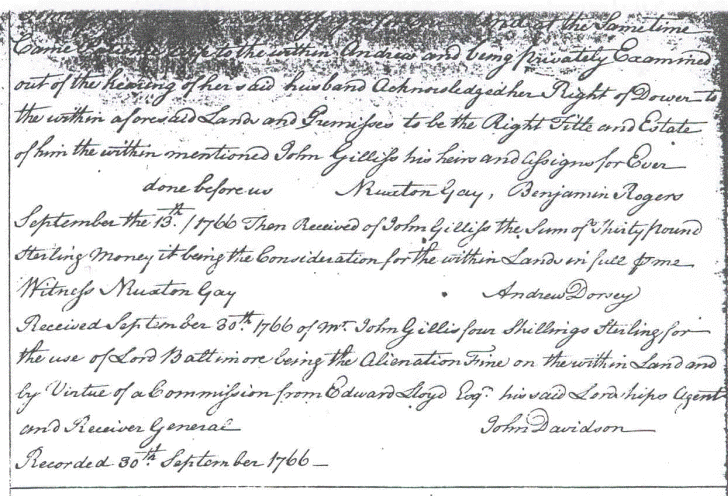 of the Sametime
Came wife to the within Andrew and being privately Examined
out of the hearing of her said husband Acknowledged her Right of Dower to
the within aforesaid Lands and Premisses to be the Right Title and Estate
of him the within mentioned John Gilliss his heirs and Assigns for Ever
done before us Nuxton Gay, Benjamin Rogers
September the 13th. / 1766 Then Received of John Gilliss the Sum of Thirty pound
Sterling Money it being the Consideration for the within Lands in full ⅌ me
Witness Nuxton Gay Andrew Dorsey
Received September 30th. 1766 of Mr. John Gillis four Shillings Sterling for
the use of Lord Baltimore being the Alienation Fine on the within Land and
by Virtue of a Commission from Edward Lloyd Esqr. his said Lordships Agent
and Receiver General John Davidson
Recorded 30th. September 1766